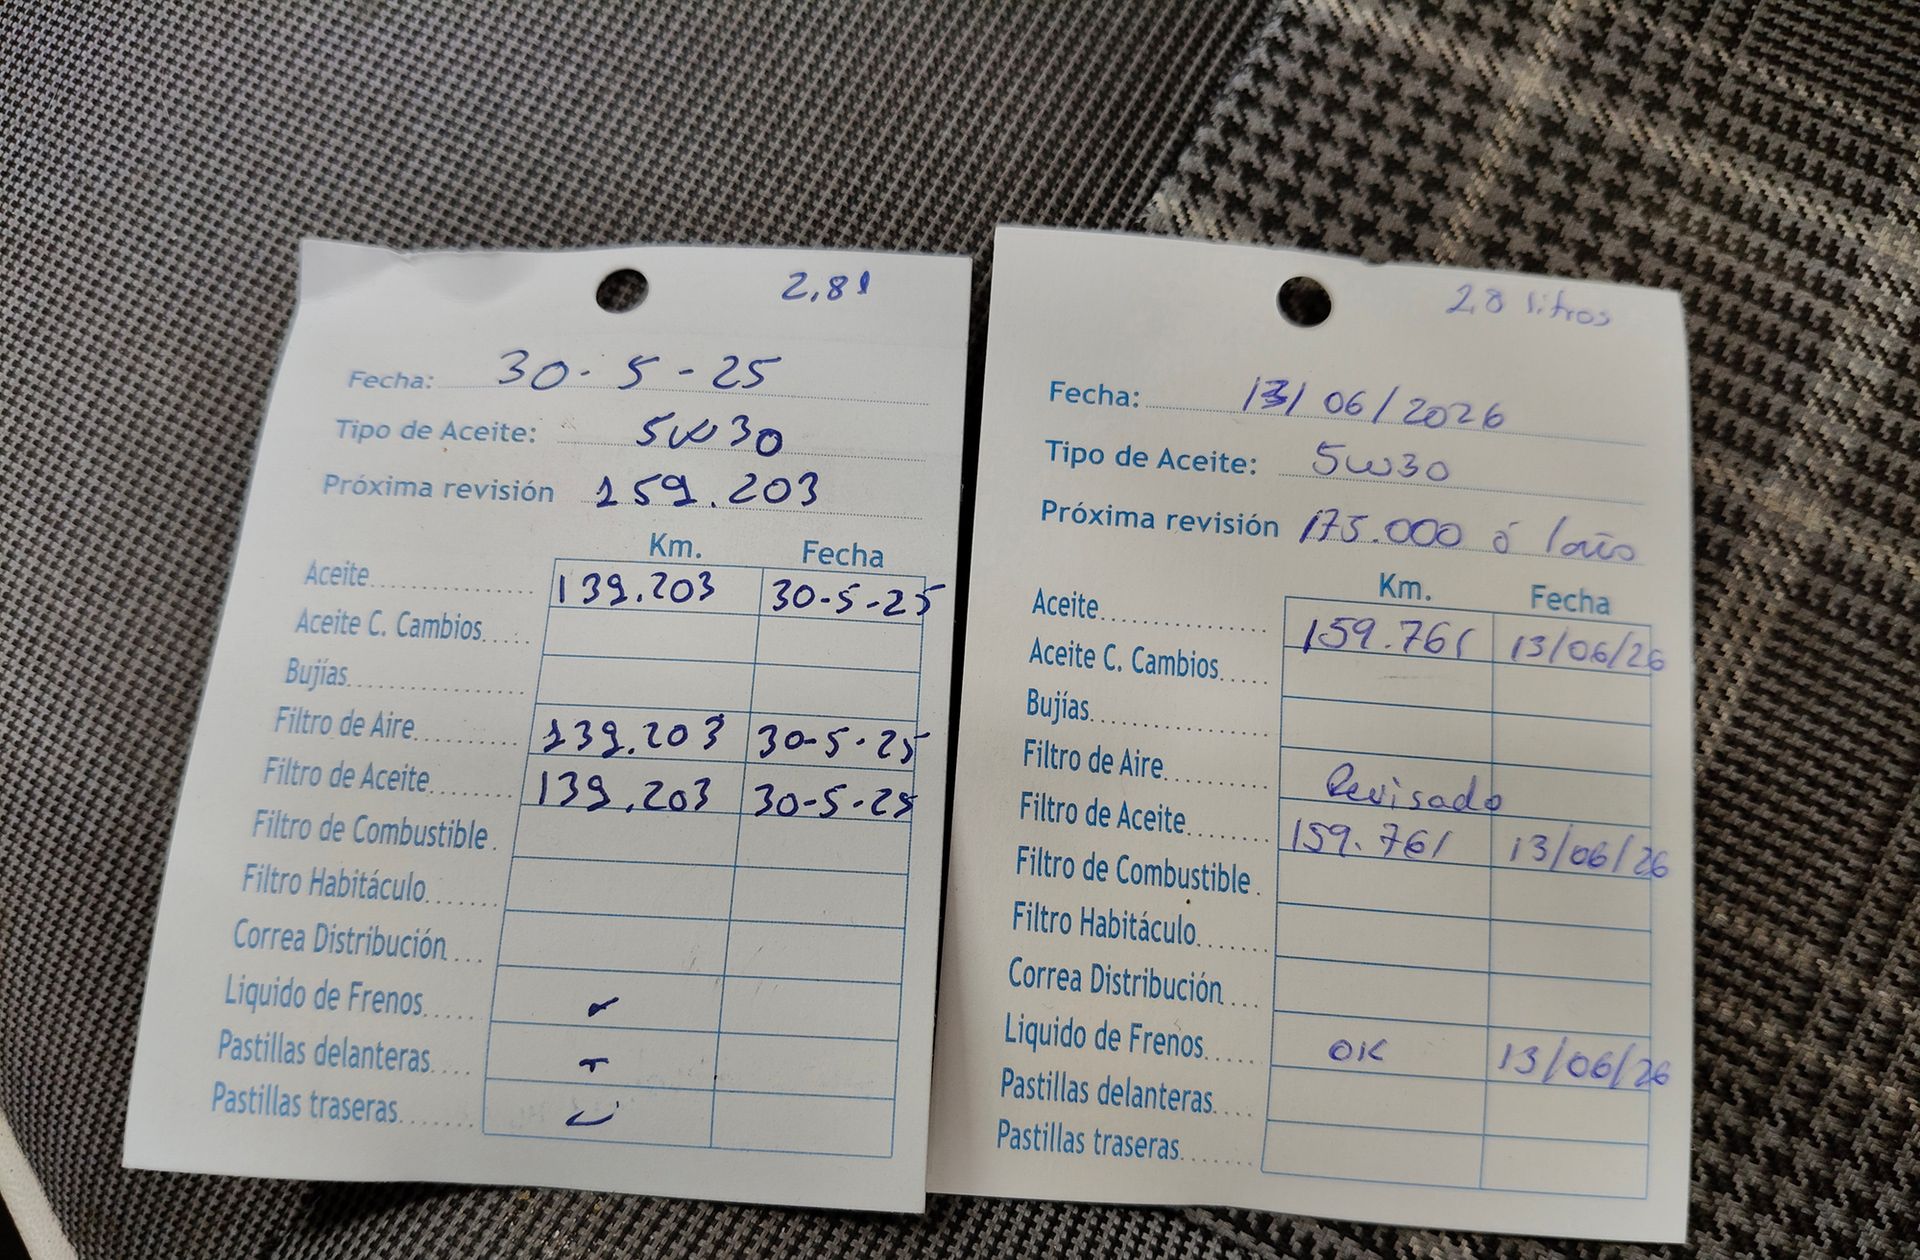 2,8l
Fecha: 30-5-25
Tipo de Aceite: 5w30
Próxima revisión 159.203
Km. Fecha
Aceite 139.203 30-5-25
Aceite C. Cambios
Bujías
Filtro de Aire 139.203 30-5-25
Filtro de Aceite 139.203 30-5-25
Filtro de Combustible
Filtro Habitáculo
Correa Distribución
Liquido de Frenos
Pastillas delanteras
Pastillas traseras
2,8 litros
Fecha: 13/06/2026
Tipo de Aceite: 5w30
Próxima revisión 175.000 ó 1año
Km. Fecha
Aceite 159.761 13/06/26
Aceite C. Cambios
Bujías
Filtro de Aire Revisado
Filtro de Aceite 159.761 13/06/26
Filtro de Combustible
Filtro Habitáculo
Correa Distribución
Liquido de Frenos OK 13/06/26
Pastillas delanteras
Pastillas traseras